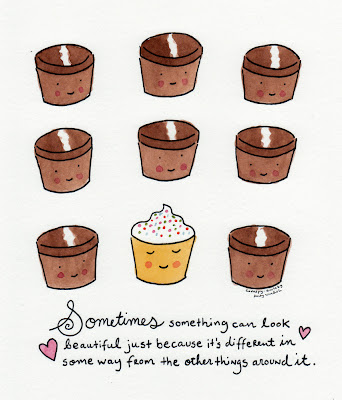 Sometimes something can look
beautiful just because it's different in
some way from the other things around it.